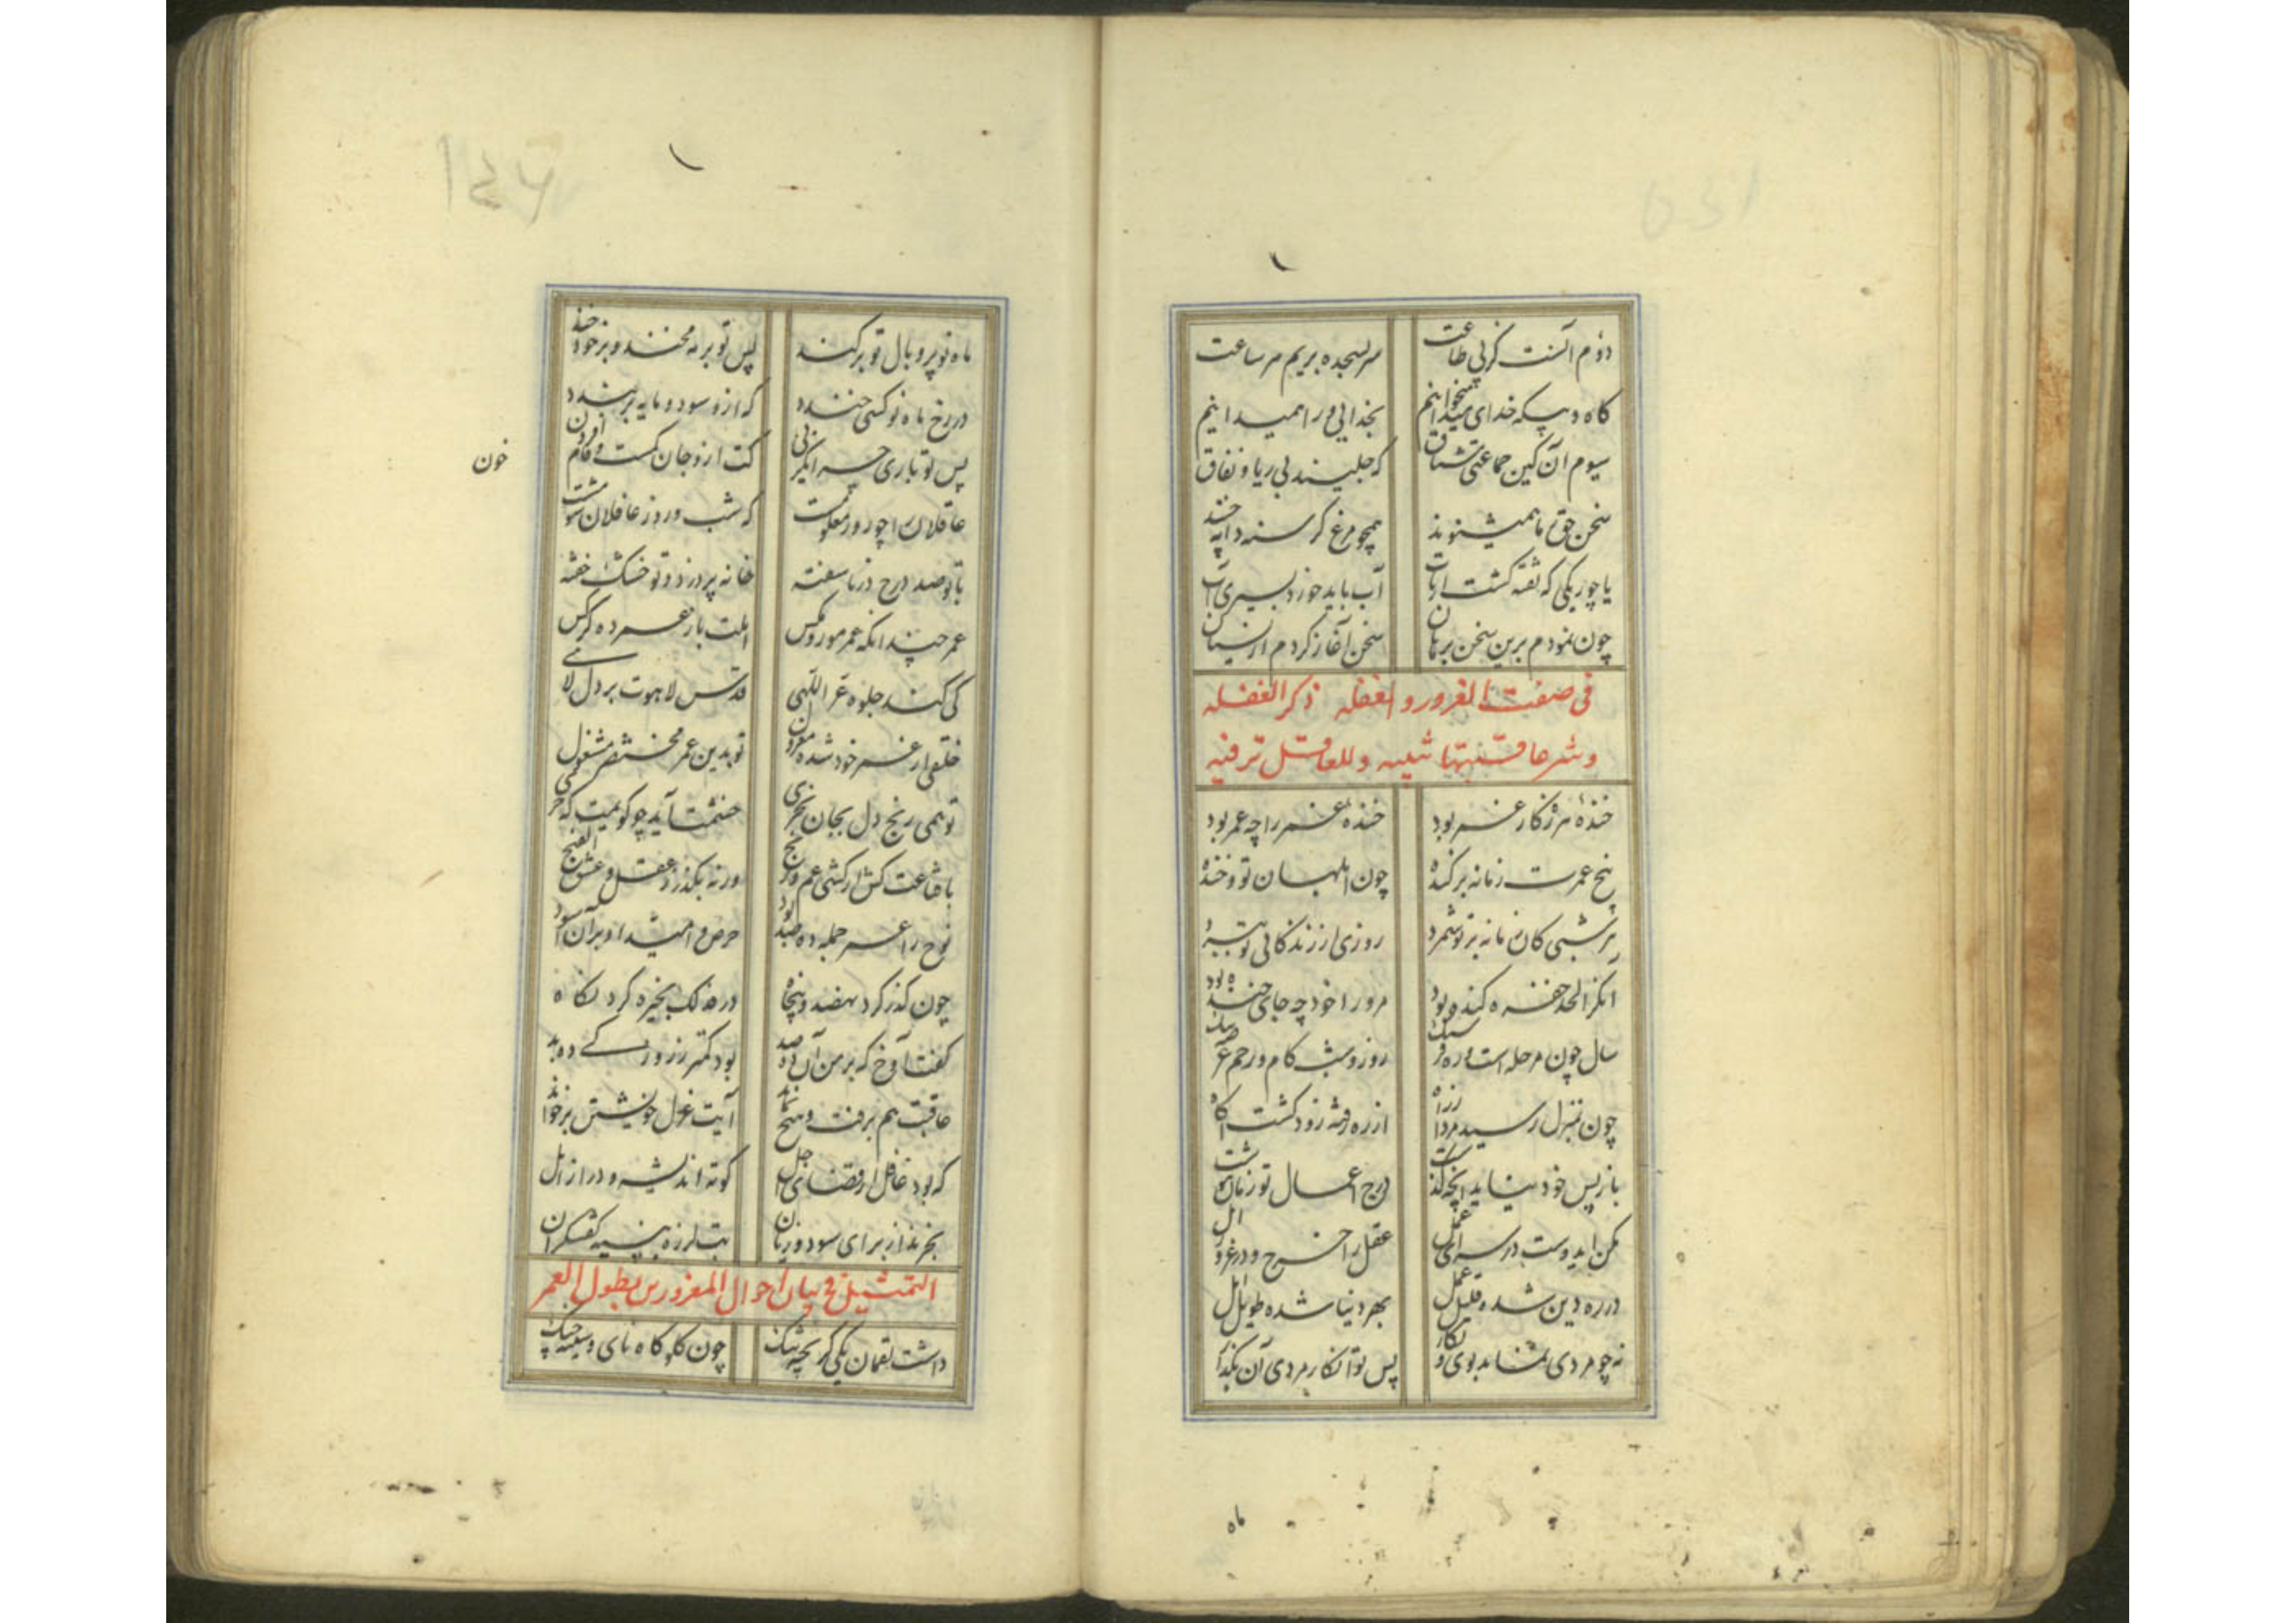 دوم آنست کز پی طاعت سر بسجده بریم هر ساعت
گاه و بیگه خدای میخوانیم بخدایی ورا همیدانیم
سیوم آن کین جماعتی مشتاق که جلیسند بی ریا و نفاق
سخن حق ز ما همیشنوند همچو مرغ گرسنه دانه چنند
یا چو ریگی که تفته گشت از تاب آب باید خورد بسیری آب
چون نمودم برین سخن برهان سخن آغاز کردم از نسیان
فی صفت الغرور و الغفله ذکر الغفله
وشرعاقبتها تنبیه وللعاقل ترفیه
خندهٔ هرزه کار غمر بود خندهٔ غمر را چه عمر بود
بیخ عمرت زمانه برکنده چون ابلهان تو و خنده
هر شبی کان زمانه بر تو شمرد روزی از زندگانی تو ببرد
آنکز الحد حفره کنده بود مرورا خود چه جای خنده بود
سال چون مرحله است و ره فرسنگ روز و شب کام و رحم
چون بمنزل رسید مرد از راه از ره رفته زود گشت آگاه
باز پس خود نیاید آنچه گذشت درج اعمال تو زمان بنوشت
مکن ای دوست در سرای عمل عقل را خرج در غرور امل
در ره دین شده قلیل عمل بهر دنیا شده طویل امل
نه چو مردی نماند بوی و نگار پس تو انکار مردی آن بگذار
ماه
۱۴۶
ماه نو پر و بال تو برکند پس تو بر مه مخند و بر خود خند
در رخ ماه نو کسی خندد که ازو سود و مایه بربندد
پس تو باری چه انگبری کت ازو جان کمست و وام افزون
خون
عاقلان را چو روز معلومست که شب و روز غافلان شومست
با تو صد درج در ناسفته خانه پر درد و تو خسک خفته
عمر چند آنکه عمر مور و مگس املت باز عمر ده کرکس
کی کند جلوه عز اللهی قدس لاهوت بر دل لاهی
خلقی از عمر خود شده معزول تو بدین عمر مختصر مشغول
تو همی رنج دل بجان بخری خشمت آید چو گویمت که خری
با قناعت کش ار کشی غم و رنج ورنه بگذر ز عقل و عشق الفنج
نوح را عمر جمله ده صد بود حرص و امید او بر آن آسود
چون گذر کرد نهصد و پنجاه در فذلک بخیره کرد نگاه
گفت آوخ که برمن آن صد بود کمتر ز روزکی ده بد
عاقبت هم برفت و هیچ نماند آیت عزل خویشتن برخواند
که بود غافل از قضای اجل کوته اندیشه و دراز امل
بخرند از برای سود و زیان تب لرزه بنسیه کفشگران
التمثیل فی بیان احوال المغرورین بطول العمر
داشت لقمان یکی کریچه تنگ چون گلوگاه نای و سینه چنگ